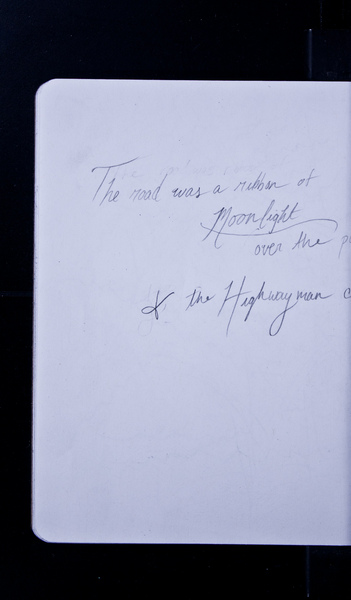 The road was a ribbon of
Moonlight
over the
& the Highwayman